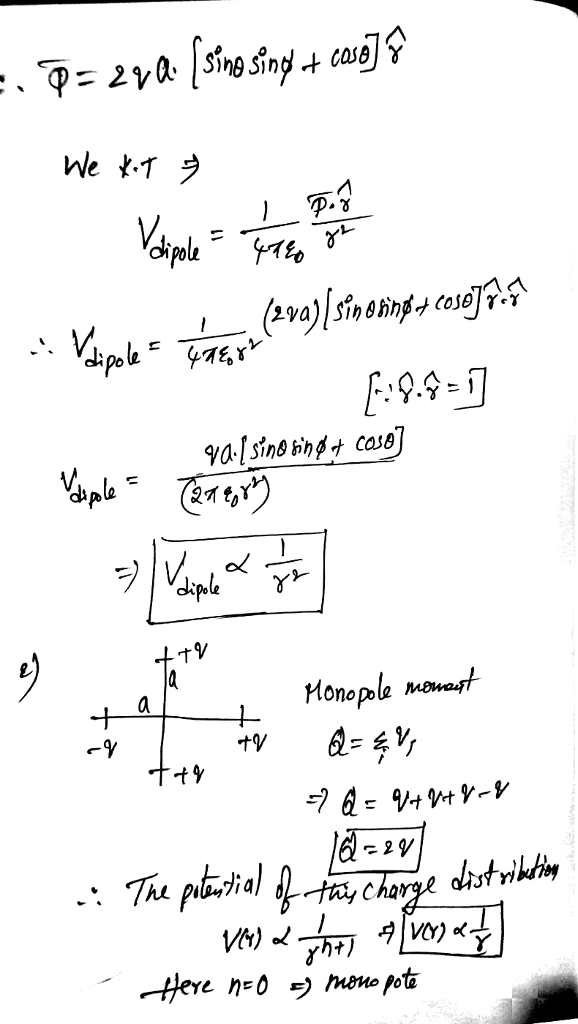 ∴ P̅ = 2qa. [sinθ sinφ + cosθ] r̂
We K.T ⇒
V_dipole = 1/4πε₀ P̅.r̂/r²
∴ V_dipole = 1/4πε₀r² (2qa)[sinθ sinφ + cosθ] r̂.r̂
[∵ r̂.r̂ = 1]
V_dipole = qa.[sinθ sinφ + cosθ]/(2πε₀r²)
⇒ V_dipole ∝ 1/r²
2)
+q
a
a
-q
+q
+q
Monopole moment
Q = Σᵢ qᵢ
⇒ Q = q+q+q-q
Q = 2q
∴ The potential of this charge distribution
V(r) ∝ 1/rⁿ⁺¹ ⇒ V(r) ∝ 1/r
Here n=0 ⇒ monopole